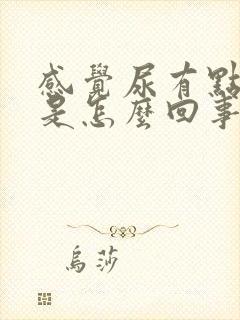 感覺尿有點
是怎麼回事
烏莎